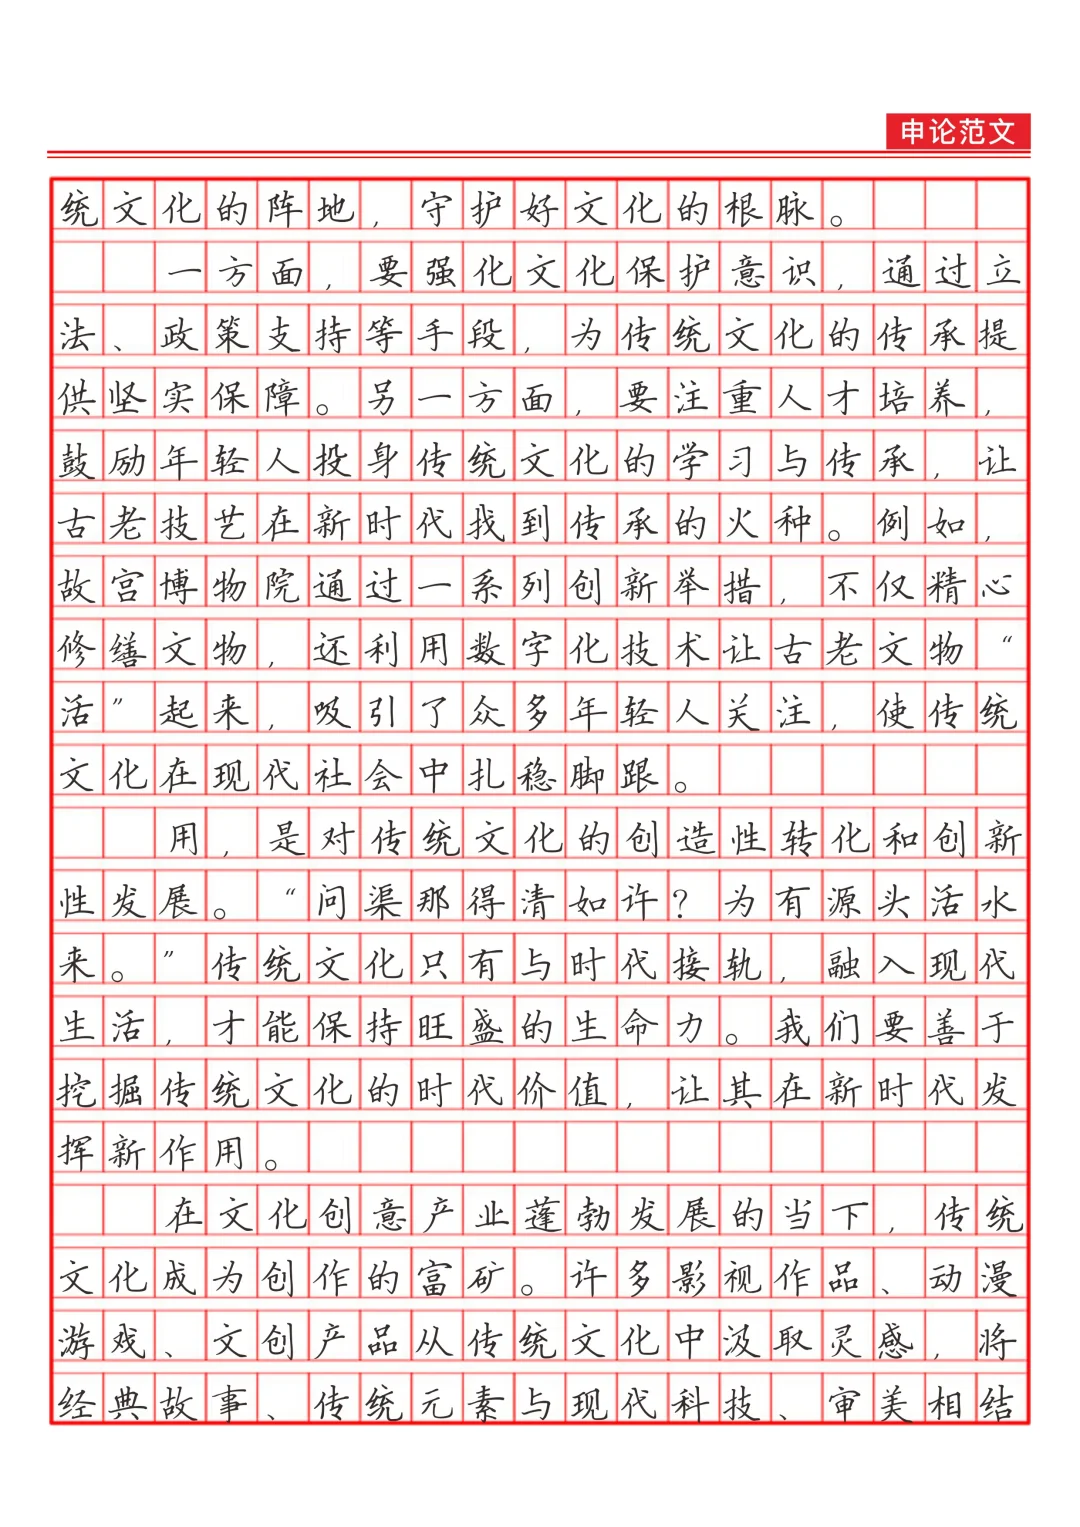 申论范文
统文化的阵地，守护好文化的根脉。
一方面，要强化文化保护意识，通过立
法、政策支持等手段，为传统文化的传承提
供坚实保障。另一方面，要注重人才培养，
鼓励年轻人投身传统文化的学习与传承，让
古老技艺在新时代找到传承的火种。例如，
故宫博物院通过一系列创新举措，不仅精心
修缮文物，还利用数字化技术让古老文物“
活”起来，吸引了众多年轻人关注，使传统
文化在现代社会中扎稳脚跟。
用，是对传统文化的创造性转化和创新
性发展。“问渠那得清如许？为有源头活水
来。”传统文化只有与时代接轨，融入现代
生活，才能保持旺盛的生命力。我们要善于
挖掘传统文化的时代价值，让其在新时代发
挥新作用。
在文化创意产业蓬勃发展的当下，传统
文化成为创作的富矿。许多影视作品、动漫
游戏、文创产品从传统文化中汲取灵感，将
经典故事、传统元素与现代科技、审美相结